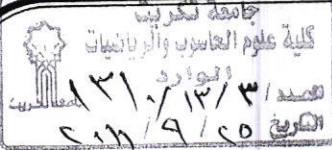 جامعة تكريت
كلية علوم الحاسوب والرياضيات
الوارد
العدد / ٣ / ١٣ / ١٣١٠
التاريخ ٢٥ / ٩ / ٢٠١١